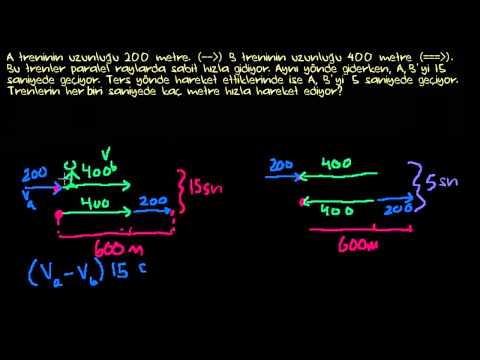 A treninin uzunluğu 200 metre. (-->) B treninin uzunluğu 400 metre (===>).
Bu trenler paralel raylarda sabit hızla gidiyor. Aynı yönde giderken, A, B'yi 15
saniyede geçiyor. Ters yönde hareket ettiklerinde ise A, B'yi 5 saniyede geçiyor.
Trenlerin her biri saniyede kaç metre hızla hareket ediyor?
200 400 V b
V a
400 200
15 sn
600 m
(Va - Vb) 15
200 400
400 200
5 sn
600m